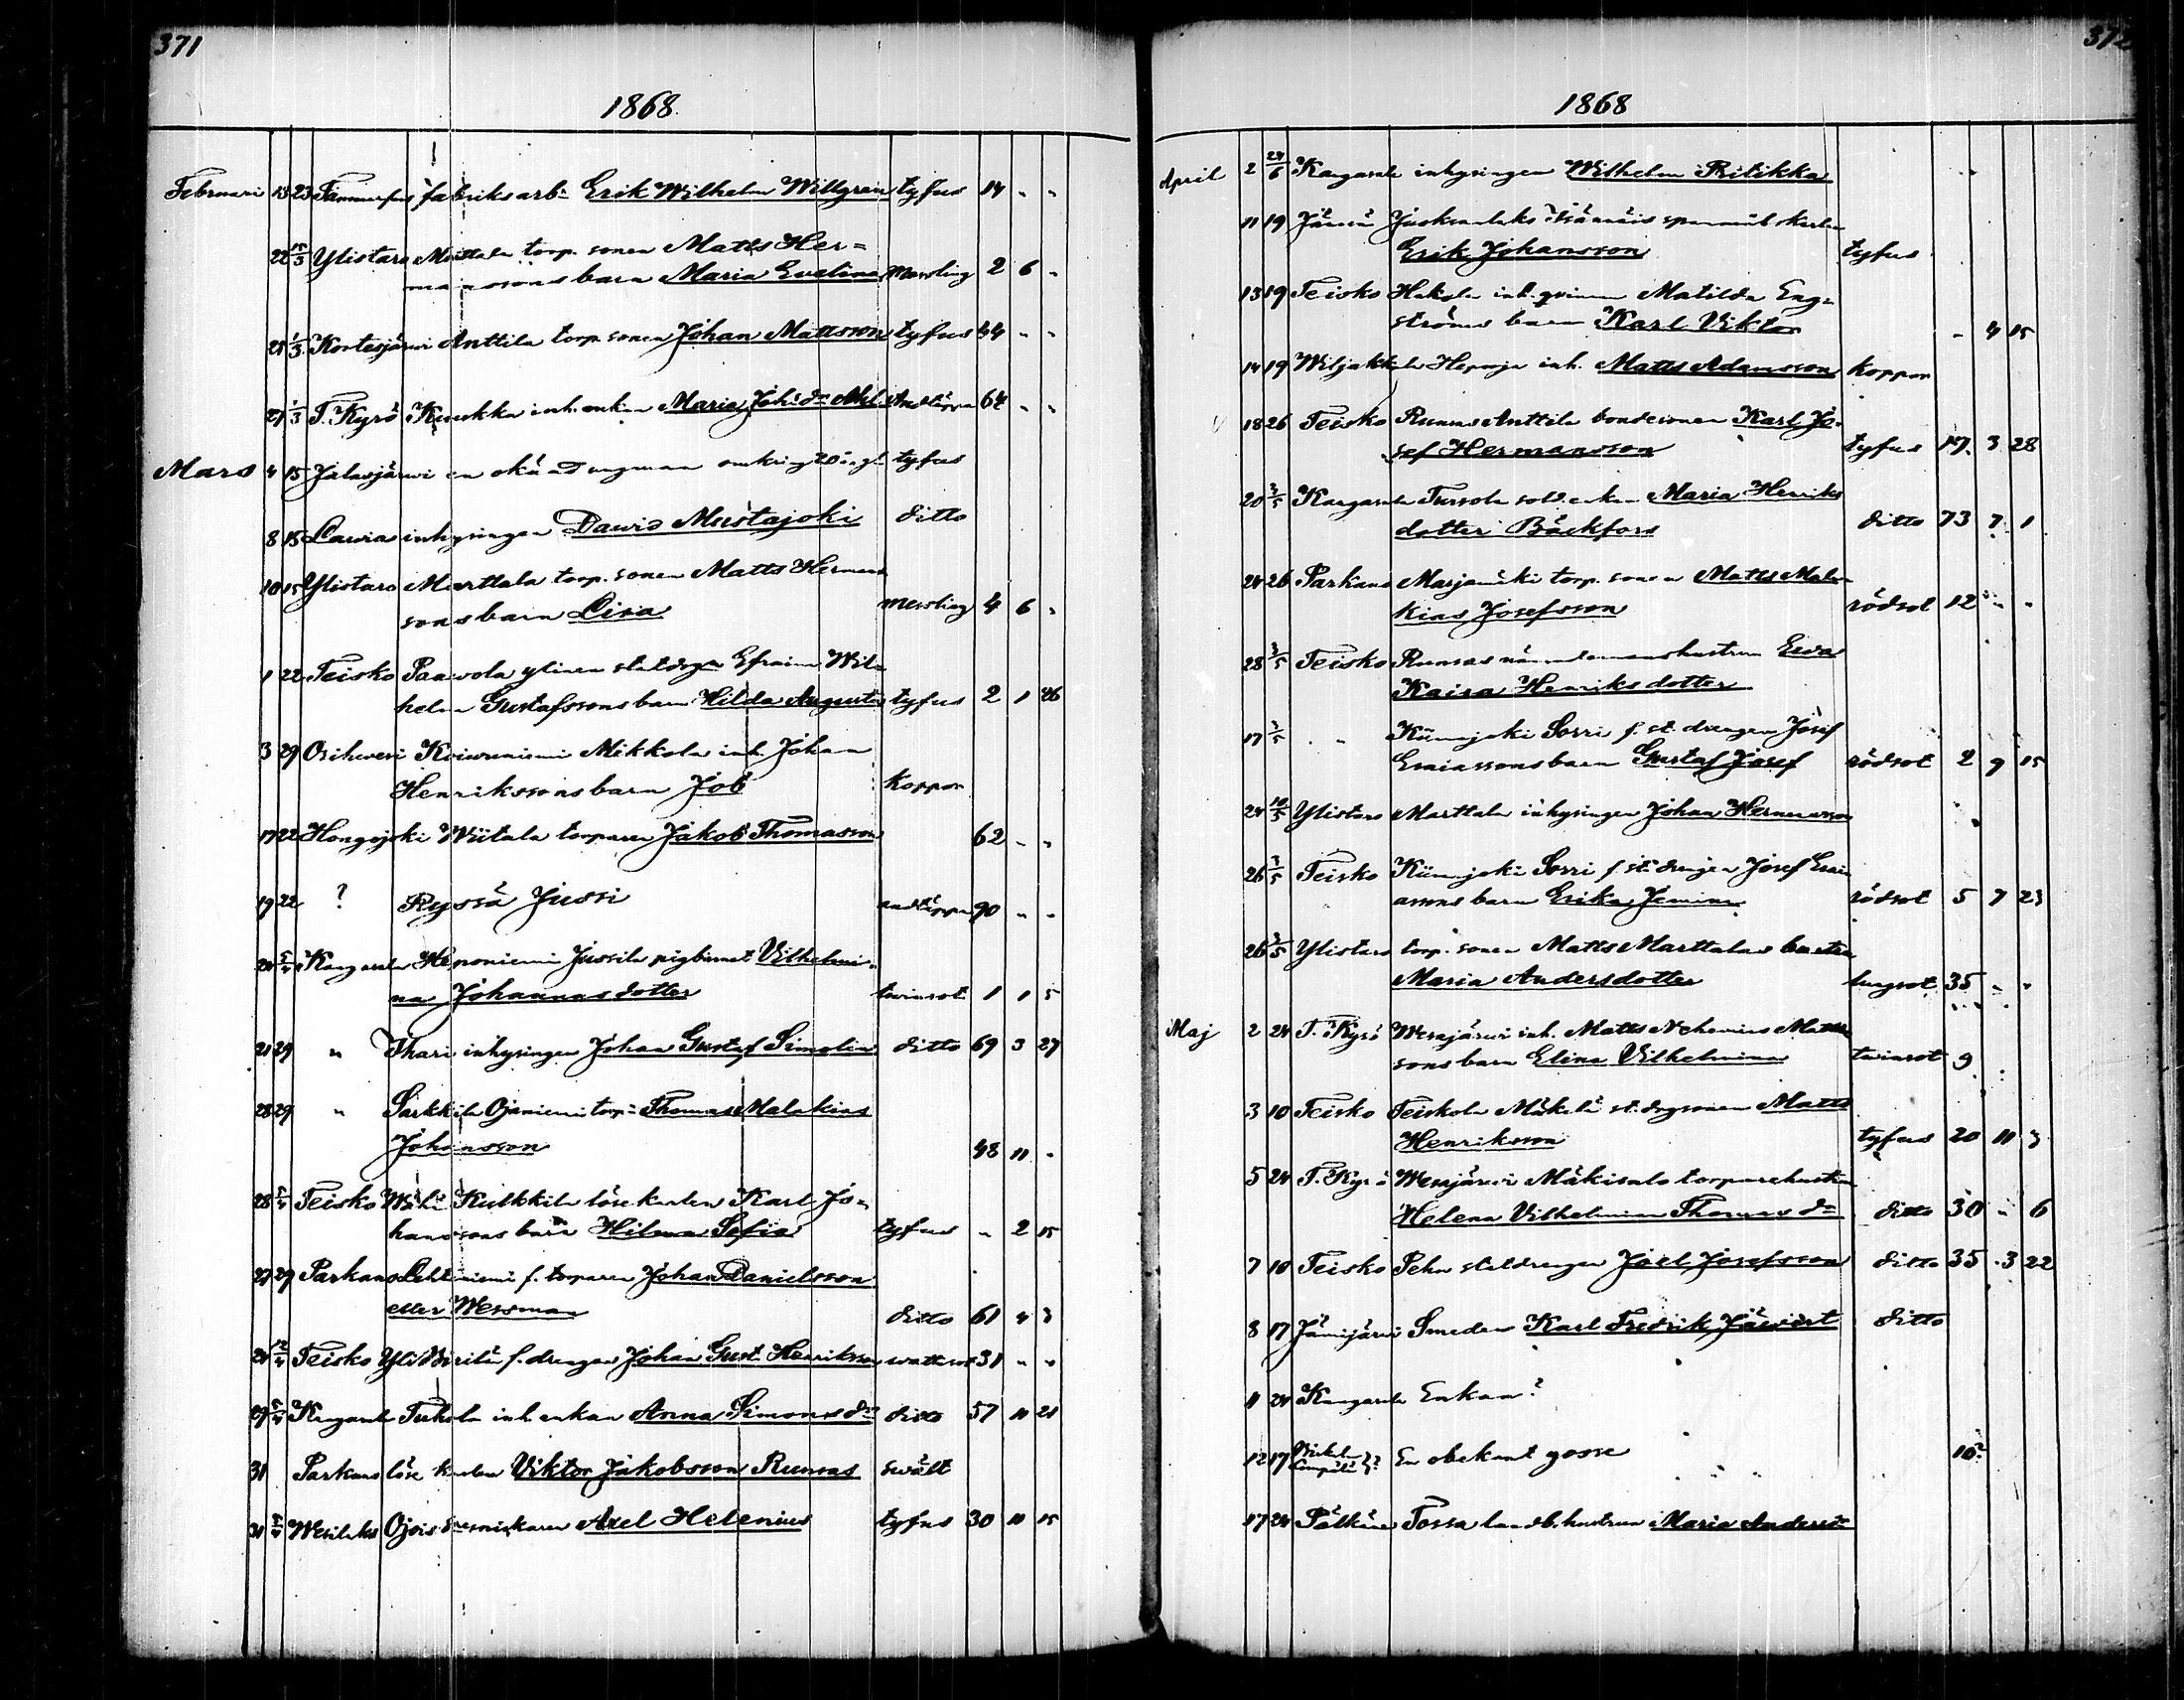 371
1868.
Februari 13 23 Tammerfors fabriksarb: Erik Wilhelm Willgren tyfus 14 - -
22 15/3 Ylistaro Marttala torp. sonen Matts Her=
manssons barn Maria Evelina Messling 2 6 -
25 1/3 Kortesjärvi Anttila torp. sonen Johan Mattsson tyfus 44 - -
27 1/3 T. Kyrö Kuukka inh. enkan Maria Joh:sd:r Ahl Andtäppa 64 - -
Mars 4 15 Jalasjärvi en okänd ungman omkring 20 tyfus
8 15 Lavia inhysingen David Mustajoki ditto
10 15 Ylistaro Marttala torp. sonen Matts Hermans
sons barn Lisa messling 4 6 -
1 22 Teisko Paavola ylinen statdrgn Efraim Wil=
helm Gustafssons barn Hilda Augusta tyfus 2 1 26
3 29 Orihvesi Koivuniemi Mikkola inh. Johan
Henrikssons barn Job koppor
17 22 Hongojoki Wiitala torparen Jakob Thomasson 62 - -
19 22 ? Ryssä Jussi andtäppa 90 - -
20 5/4 Kangasala Heponiemi Jussila pigbarnet Vilhelmi=
na Johannasdotter twinsot 1 1 5
21 29 " Ihari inhysingen Johan Gustaf Simolin ditto 69 3 27
28 29 " Sarkkila Ojaniemi torp: Thomas Malakias
Johansson 48 11 -
28 5/4 Teisko Kulkkila lösekarlen Karl Jo=
hanssons barn Hilma Sofia tyfus - 2 15
27 29 Parkano Lehtiniemi f. torparen Johan Danielsson
eller Wessman ditto 61 4 3
24 12/4 Teisko Yli f. drengen Johan Gust. Henriksson wattsot 31 - -
29 5/4 Kangasala Tuhola inh. enkan Anna Simonsd:r ditto 57 11 21
31 Parkano löse karlen Viktor Jakobsson Rumas swält
31 5/4 Wesilaks Ojois Axel Helenius tyfus 30 11 15
372
1868
April 2 24/6 Kangasala inhysingen Wilhelm Ritikka
11 19 Jämsä
Erik Johansson tyfus
13 19 Teisko inh. qvinnan Matilda Eng=
ströms barn Karl Viktor - 4 15
14 19 Wiljakkala Heponja inh. Matts Adamsson koppor
18 26 Teisko Rumas Anttila bondesonen Karl Jo=
sef Hermansson tyfus 17 3 28
20 3/5 Kangasala Tursola sold. enkan Maria Henriks
dotter Bäckfors ditto 73 7 1
24 26 Parkano Marjamäki torp. sonen Matts Mala=
kias Josefsson rödsot 12 - -
28 3/5 Teisko Rumas nämndemanshustrun Eva
Kaisa Henriksdotter
17 3/5 " Kiimajoki Sorri f. st. drengen Josef
Esaiassons barn Gustaf Josef rödsot 2 9 15
24 10/5 Ylistaro Marttala inhysingen Johan Hermansson
26 3/5 Teisko Kiimajoki Sorri f. st. drengen Josef Esai
assons barn Erika Jemina rödsot 5 7 23
26 3/5 Ylistaro torp. sonen Matts Marttalas hustru
Maria Andersdotter lungsot 35 - -
Maj 2 24 T. Kyrö Wesajärvi inh. Matts Nehemias Matts
sons barn Elina Vilhelmina twinsot 9
3 10 Teisko Teiskola Mäkelä st. drgsonen Matts
Henriksson tyfus 20 11 3
5 24 T. Kyrö Wesajärvi Mäkisalo torparehustru
Helena Vilhelmina Thomasd:r ditto 30 - 6
7 10 Teisko Pehu statdrengen Joel Josefsson ditto 35 3 22
8 17 Jämijärvi Smeden Karl Fredrik ditto
11 24 Kangasala Enkan?
12 17 En obekant gosse 10?
17 24 Pälkäne Tossa landb. hustrun Maria Andersd:r